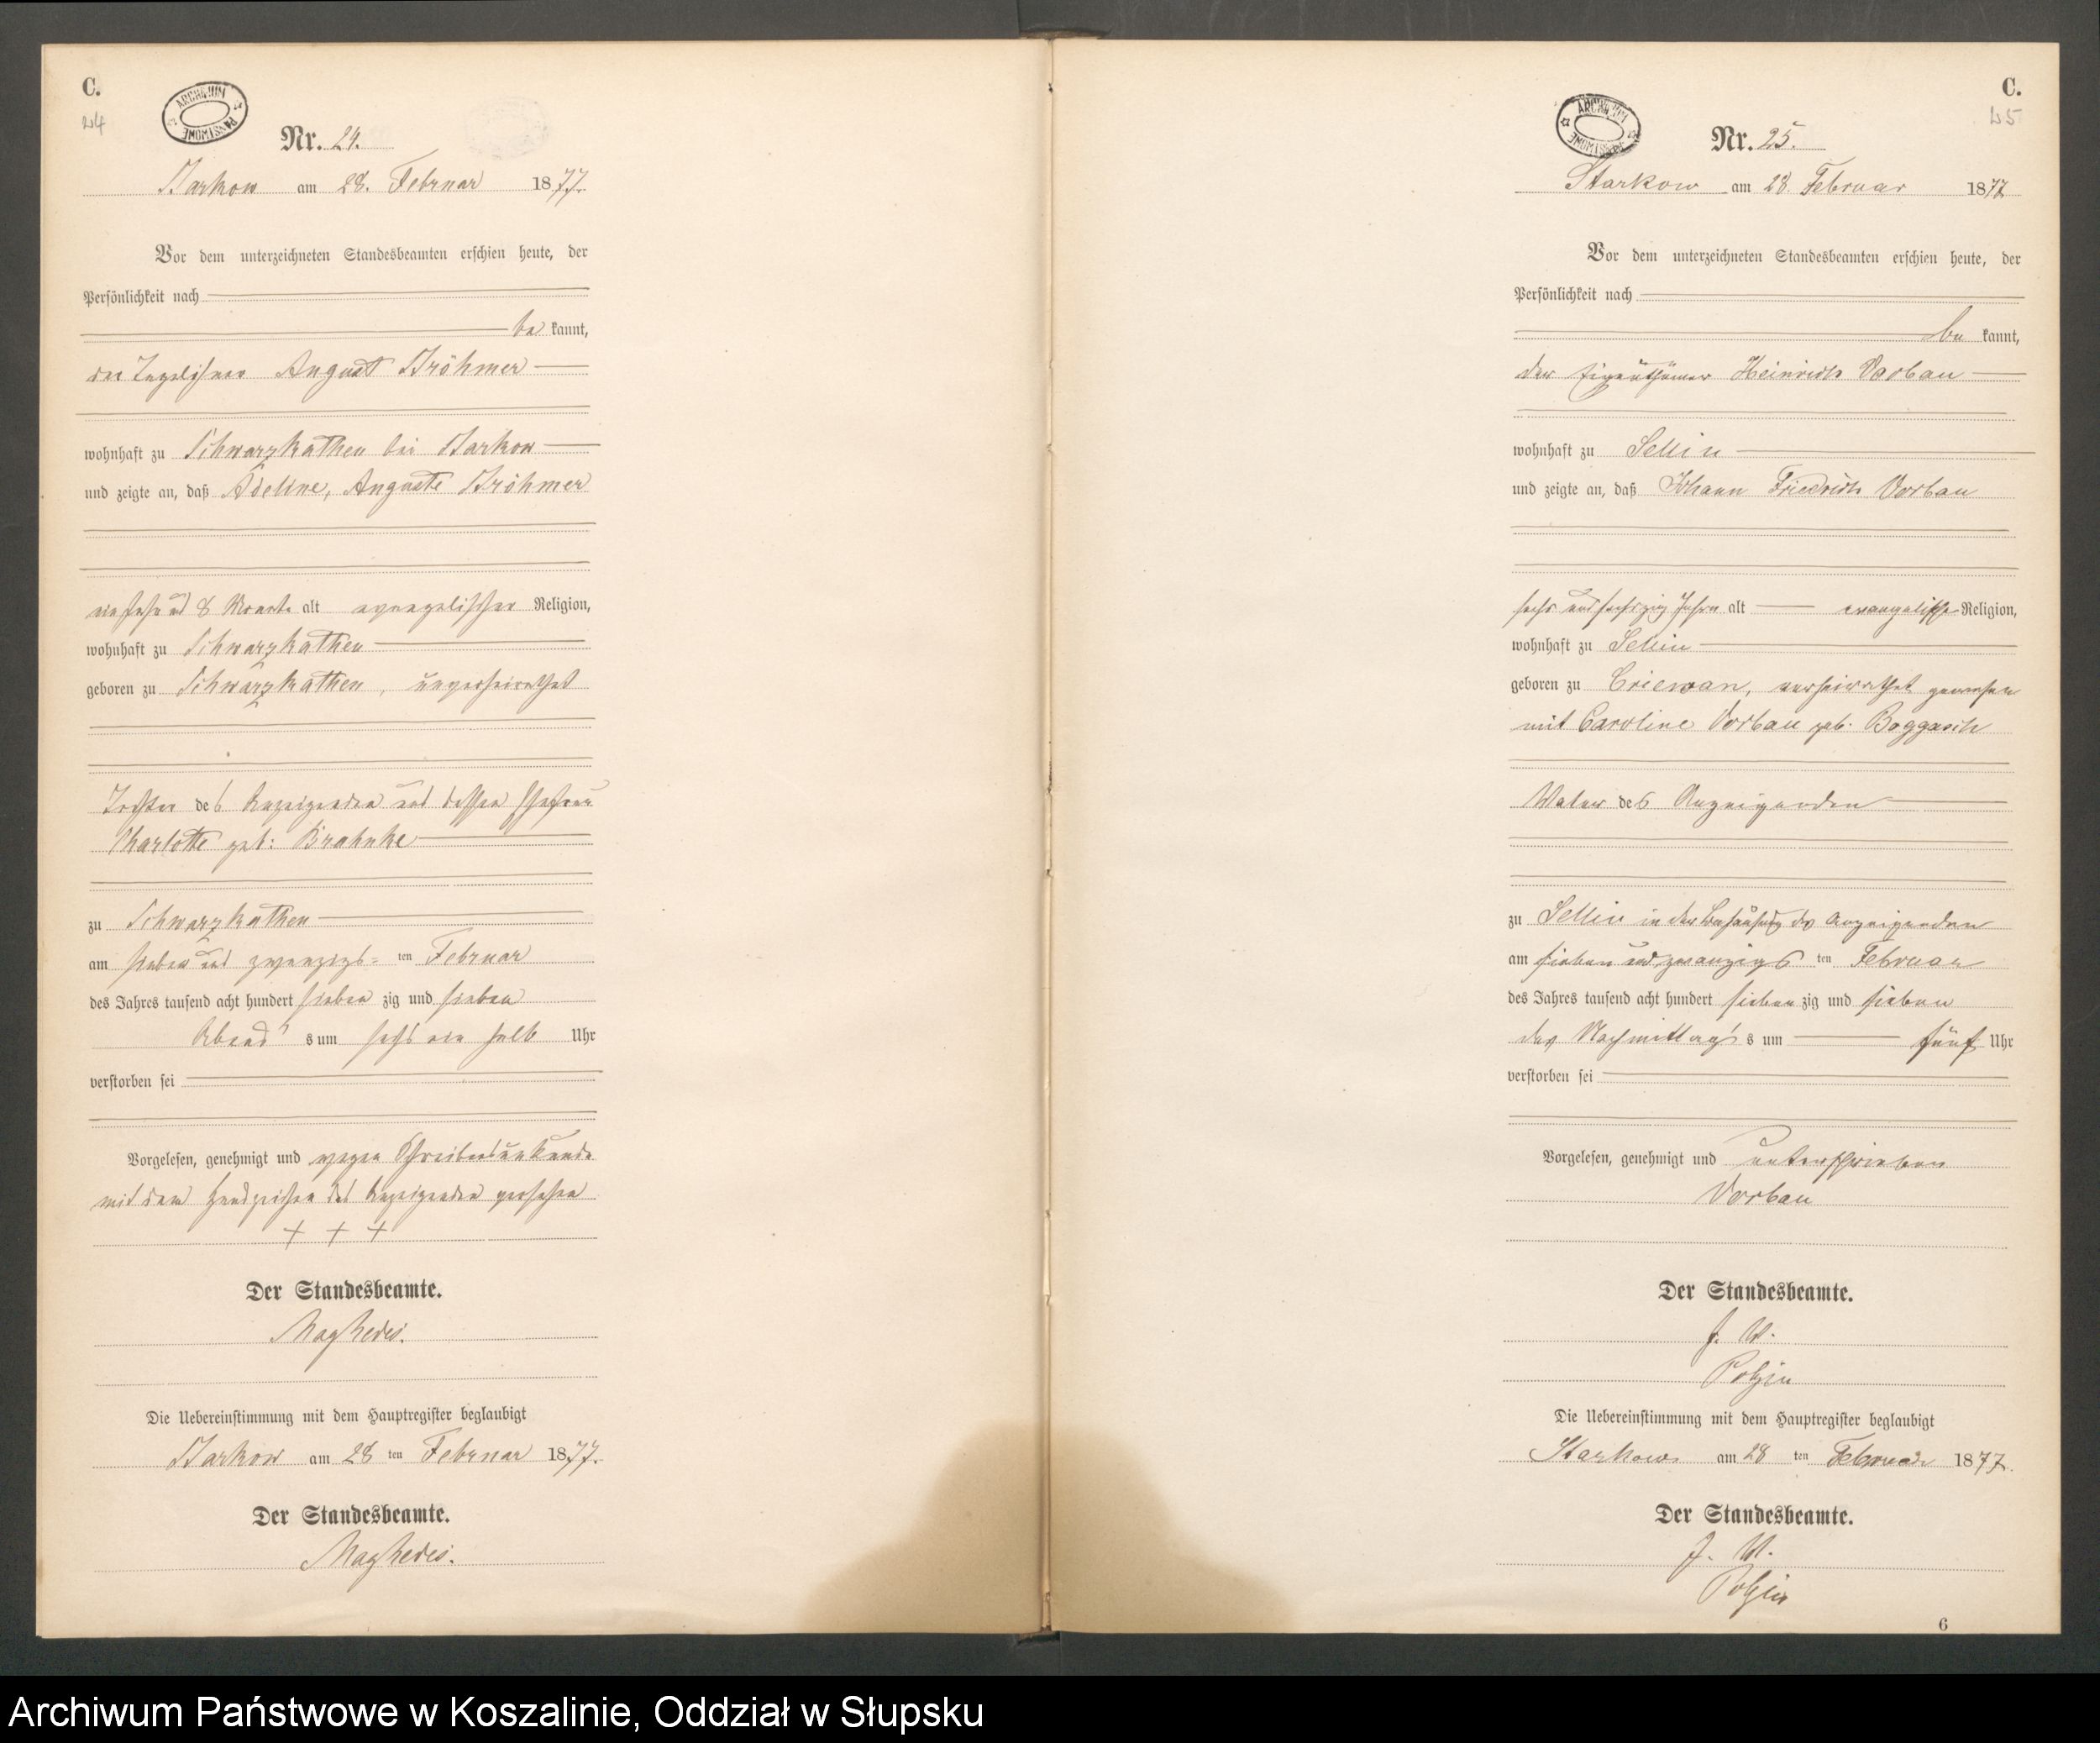 C.
24
ARCHIWUM PAŃSTWOWE
Nr. 24.
Starkow am 28. Februar 1877.
Vor dem unterzeichneten Standesbeamten erschien heute, der
Persönlichkeit nach
be kannt,
der Tagelöhner August Ströhmer
wohnhaft zu Schwarzkathen bei Starkow
und zeigte an, daß Adeline, Auguste Ströhmer
ein Jahr und 8 Monate alt evangelischer Religion,
wohnhaft zu Schwarzkathen
geboren zu Schwarzkathen, unverheirathet
Tochter des Anzeigenden und dessen Ehefrau
Charlotte geb: Brahnke
zu Schwarzkathen
am sieben und zwanzigs- ten Februar
des Jahres tausend acht hundert sieben zig und sieben
Abend s um sechs ein halb Uhr
verstorben sei
Vorgelesen, genehmigt und wegen Schreibensunkunde
mit dem Handzeichen des Anzeigenden versehen
+ + +
Der Standesbeamte.
Die Uebereinstimmung mit dem Hauptregister beglaubigt
Starkow am 28 ten Februar 1877.
Der Standesbeamte.
C.
25
ARCHIWUM PAŃSTWOWE
Nr. 25.
Starkow am 28 Februar 1877
Vor dem unterzeichneten Standesbeamten erschien heute, der
Persönlichkeit nach
be kannt,
der Eigenthümer Heinrich Vorbau
wohnhaft zu Sellin
und zeigte an, daß Johann Friedrich Vorbau
sechs und sechszig Jahre alt evangelische Religion,
wohnhaft zu Sellin
geboren zu Criewan, verheirathet gewesen
mit Caroline Vorbau geb. Boggasch
Vater des Anzeigenden
zu Sellin in der Behausung des Anzeigenden
am sieben und zwanzigs ten Februar
des Jahres tausend acht hundert sieben zig und sieben
des Nachmittag s um fünf Uhr
verstorben sei
Vorgelesen, genehmigt und unterschrieben
Vorbau
Der Standesbeamte.
J. V.
Polzin
Die Uebereinstimmung mit dem Hauptregister beglaubigt
Starkow am 28 ten Februar 1877.
Der Standesbeamte.
J. V.
Polzin
6
Archiwum Państwowe w Koszalinie, Oddział w Słupsku